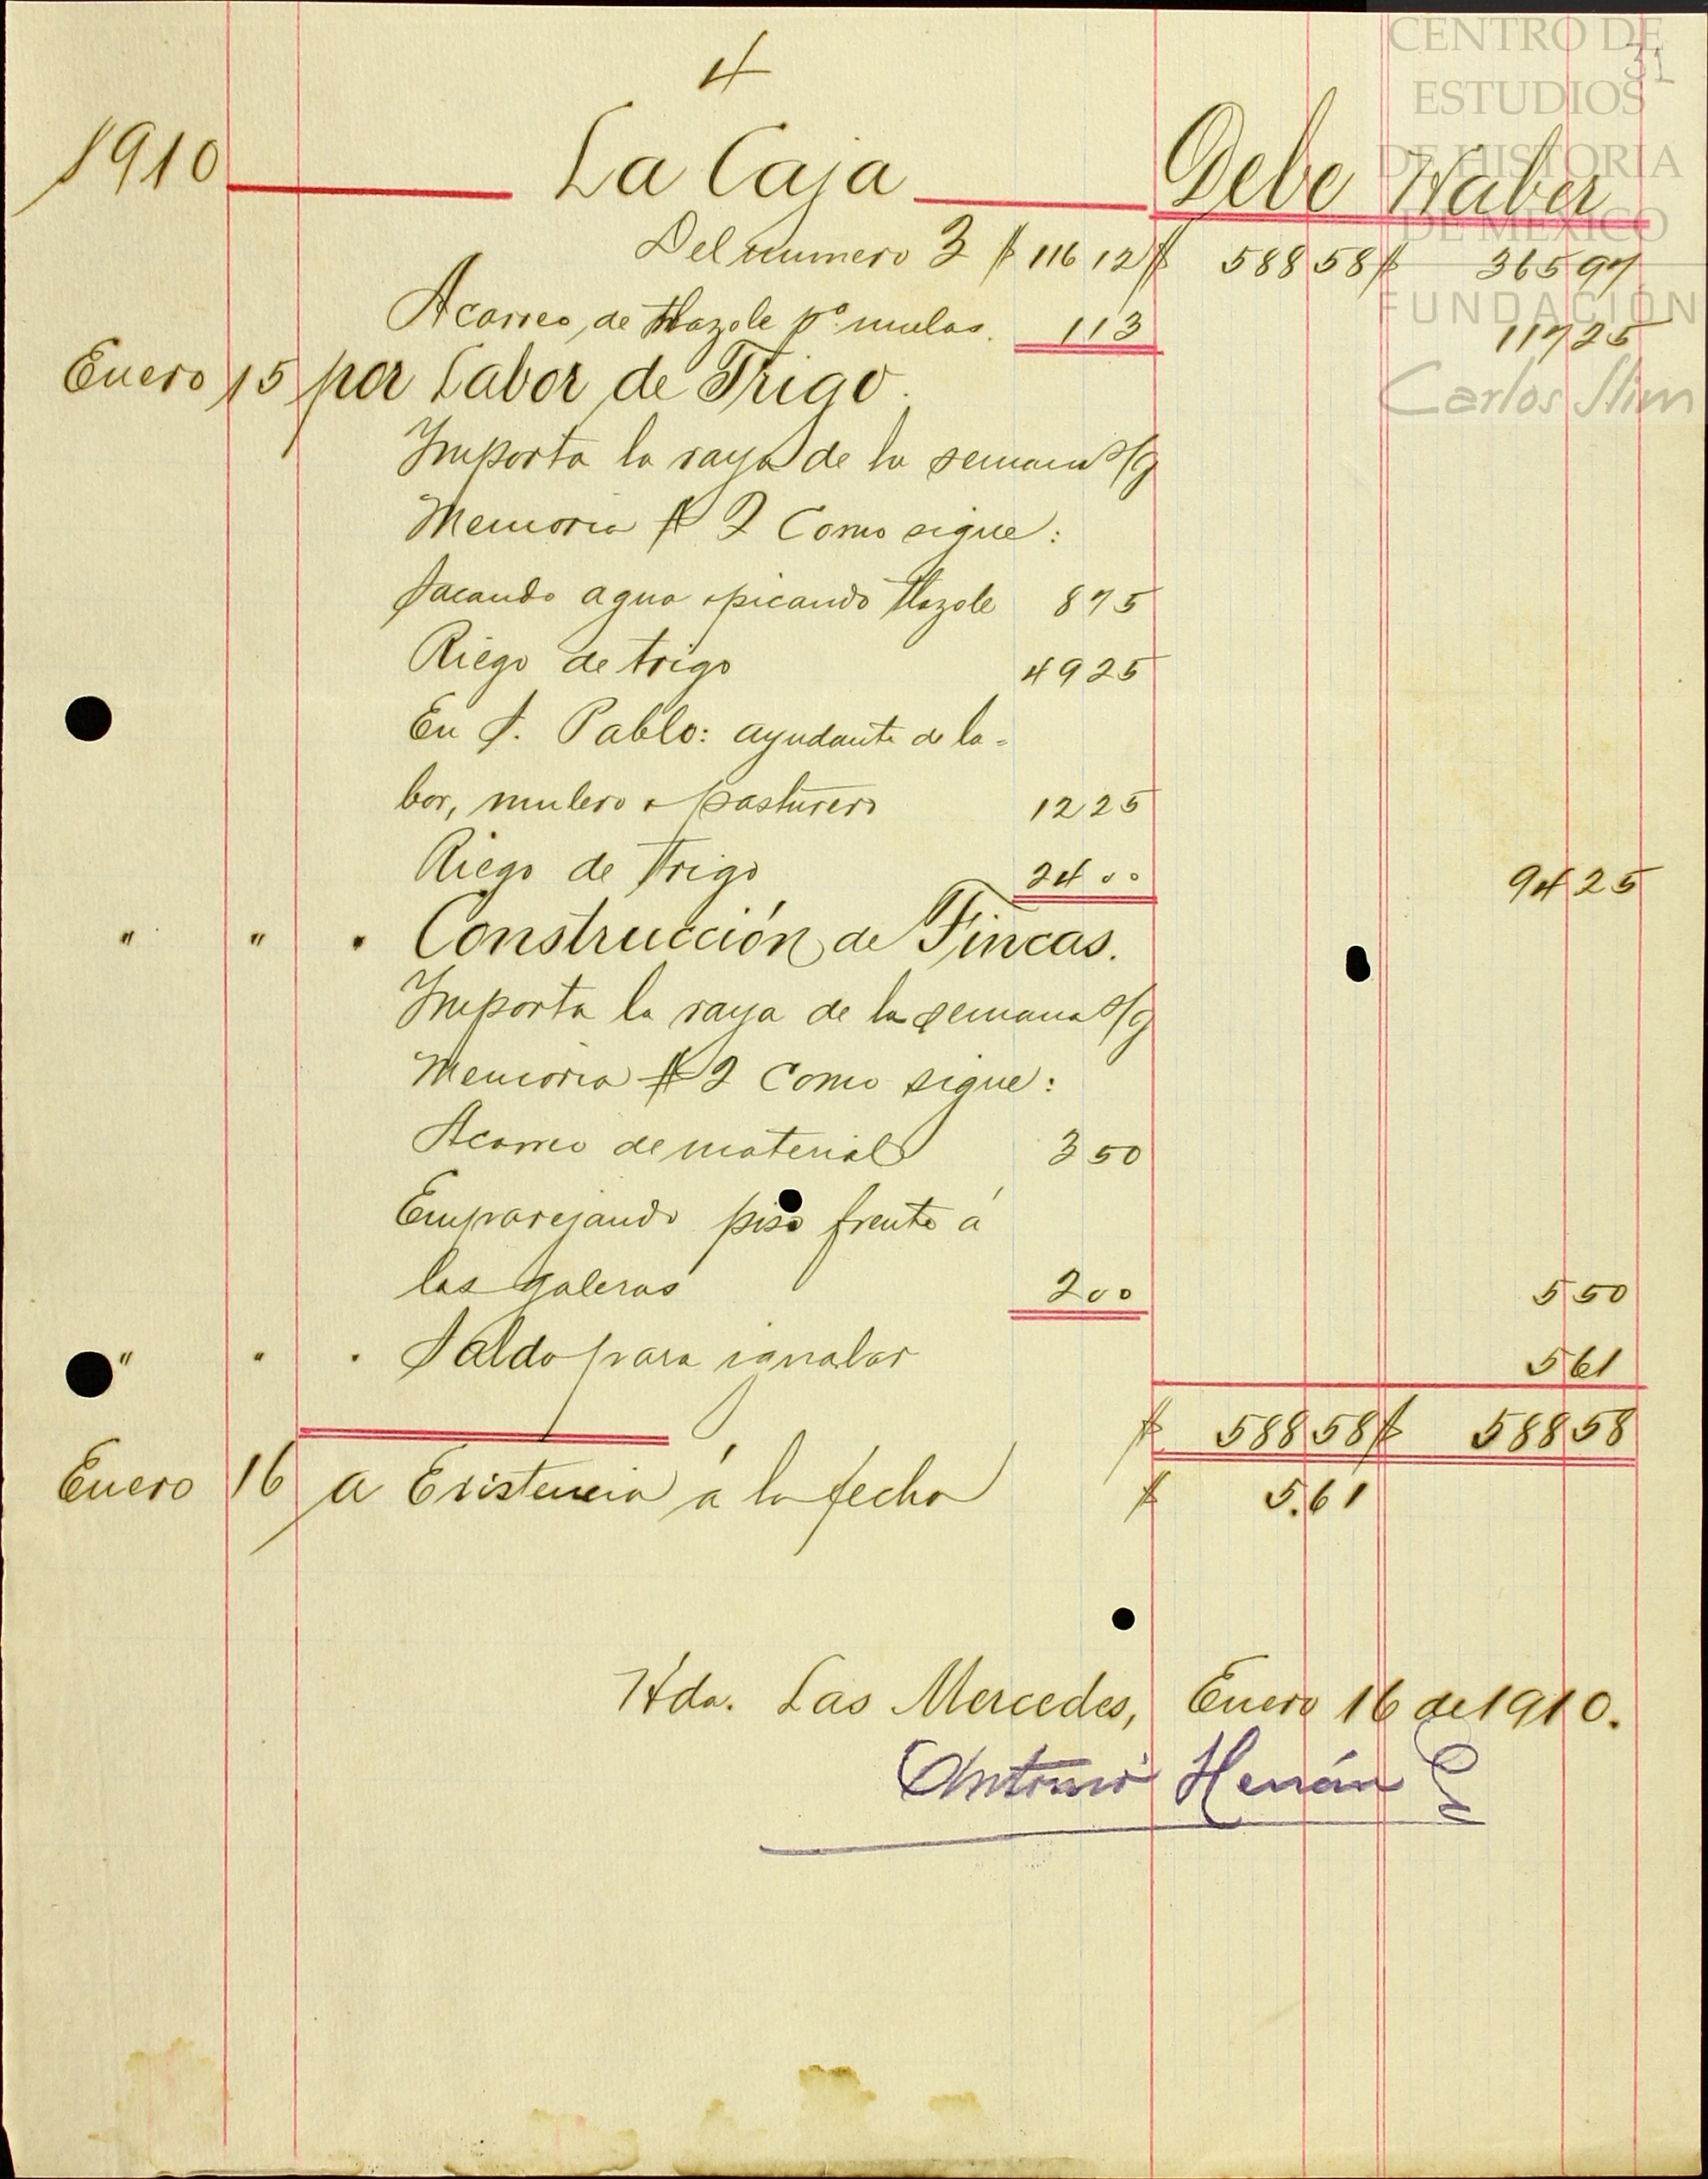 CENTRO DE
ESTUDIOS
DE HISTORIA
DE MEXICO
FUNDACIÓN
Carlos Slim
31
4
1910 La Caja Debe Haber
Del numero 3 $ 116 12 $ 588 58 $ 365 97
Acarreo de tlazole pa. mulas. 1 13 117 25
Enero 15 por Labor de Trigo.
Importa la raya de la semana s/g
Memoria # 2 Como sigue:
Sacando agua y picando tlazole 8 75
Riego de trigo 49 25
En S. Pablo: ayudante de la=
bor, mulero y pasturero 12 25
Riego de trigo 24 00 94 25
" " " Construcción de Fincas.
Importa la raya de la semana s/g
Memoria # 2 Como sigue:
Acarreo de material 3 50
Emparejando piso frente á
las galeras 2 00 5 50
" " " Saldo para igualar 5 61
$ 588 58 $ 588 58
Enero 16 a Existencia á la fecha $ 5.61
Hda. Las Mercedes, Enero 16 de 1910.
Antonio Herrán